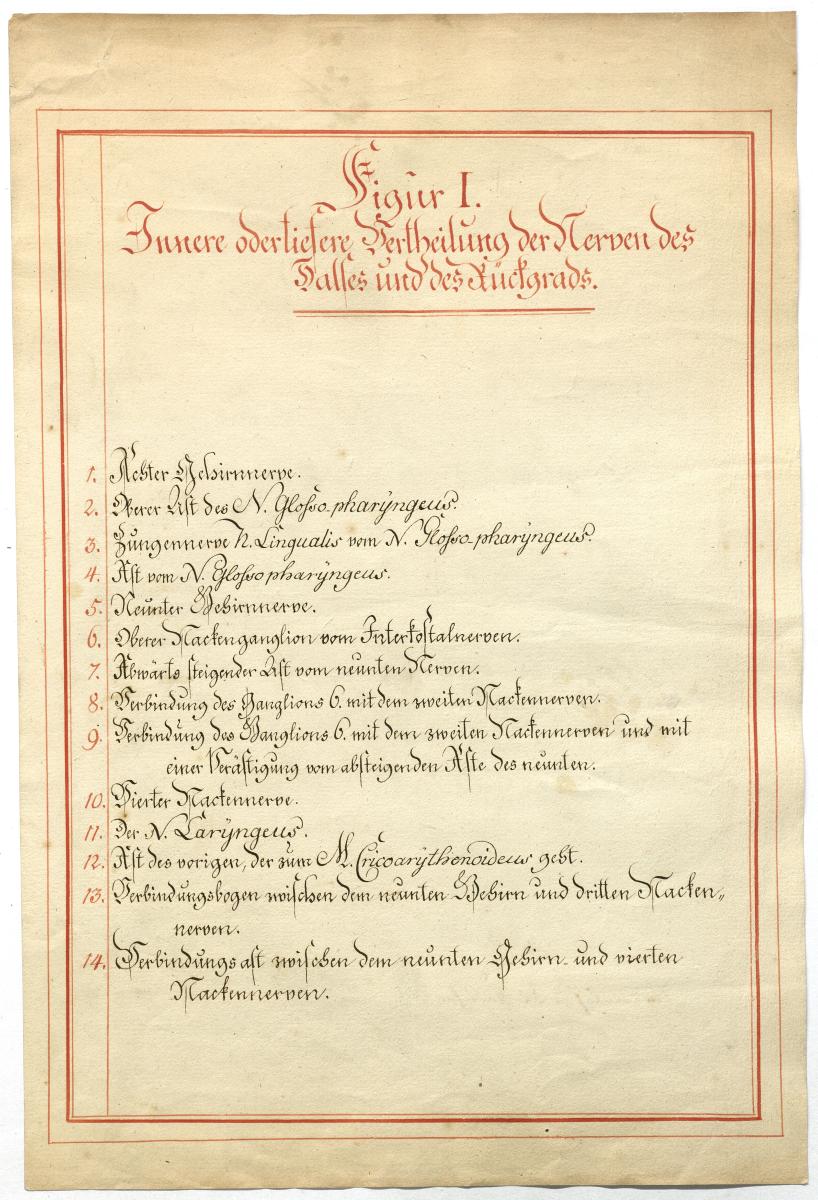 Figur I.
Innere oder tiefere Vertheilung der Nerven des
Halses und des Rückgrads.
1. Achter Gehirnnerve.
2. Oberer Ast des N. Glosso-pharÿngeus.
3. Zungennerve N. Lingualis vom N. Glosso-pharÿngeus.
4. Ast vom N. Glossopharÿngeus.
5. Neunter Gehirnnerve.
6. Oberer Nackenganglion vom Interkostalnerven.
7. Abwärts steigender Ast vom neunten Nerven.
8. Verbindung des Ganglions 6. mit dem zweiten Nackennerven.
9. Verbindung des Ganglions 6. mit dem zweiten Nackennerven und mit
einer Verästigung vom absteigenden Äste des neunten.
10. Vierter Nackennerve.
11. Der N. Larÿngeus.
12. Ast des vorigen, der zum M. Cricoarÿthenoideus geht.
13. Verbindungsbogen zwischen dem neunten Gehirn und dritten Nacken„
nerven.
14. Verbindungsast zwischen dem neunten Gehirn- und vierten
Nackennerven.